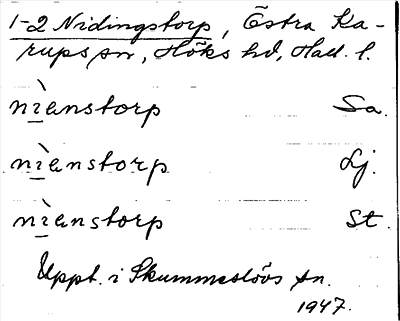 1-2 Nidingstorp, Östra Ka-
rups sn, Höks hd, Hall. l.
nìenstorp Sa.
nìenstorp Lj.
nìenstorp St.
Uppt. i Skummeslövs sn.
1947.